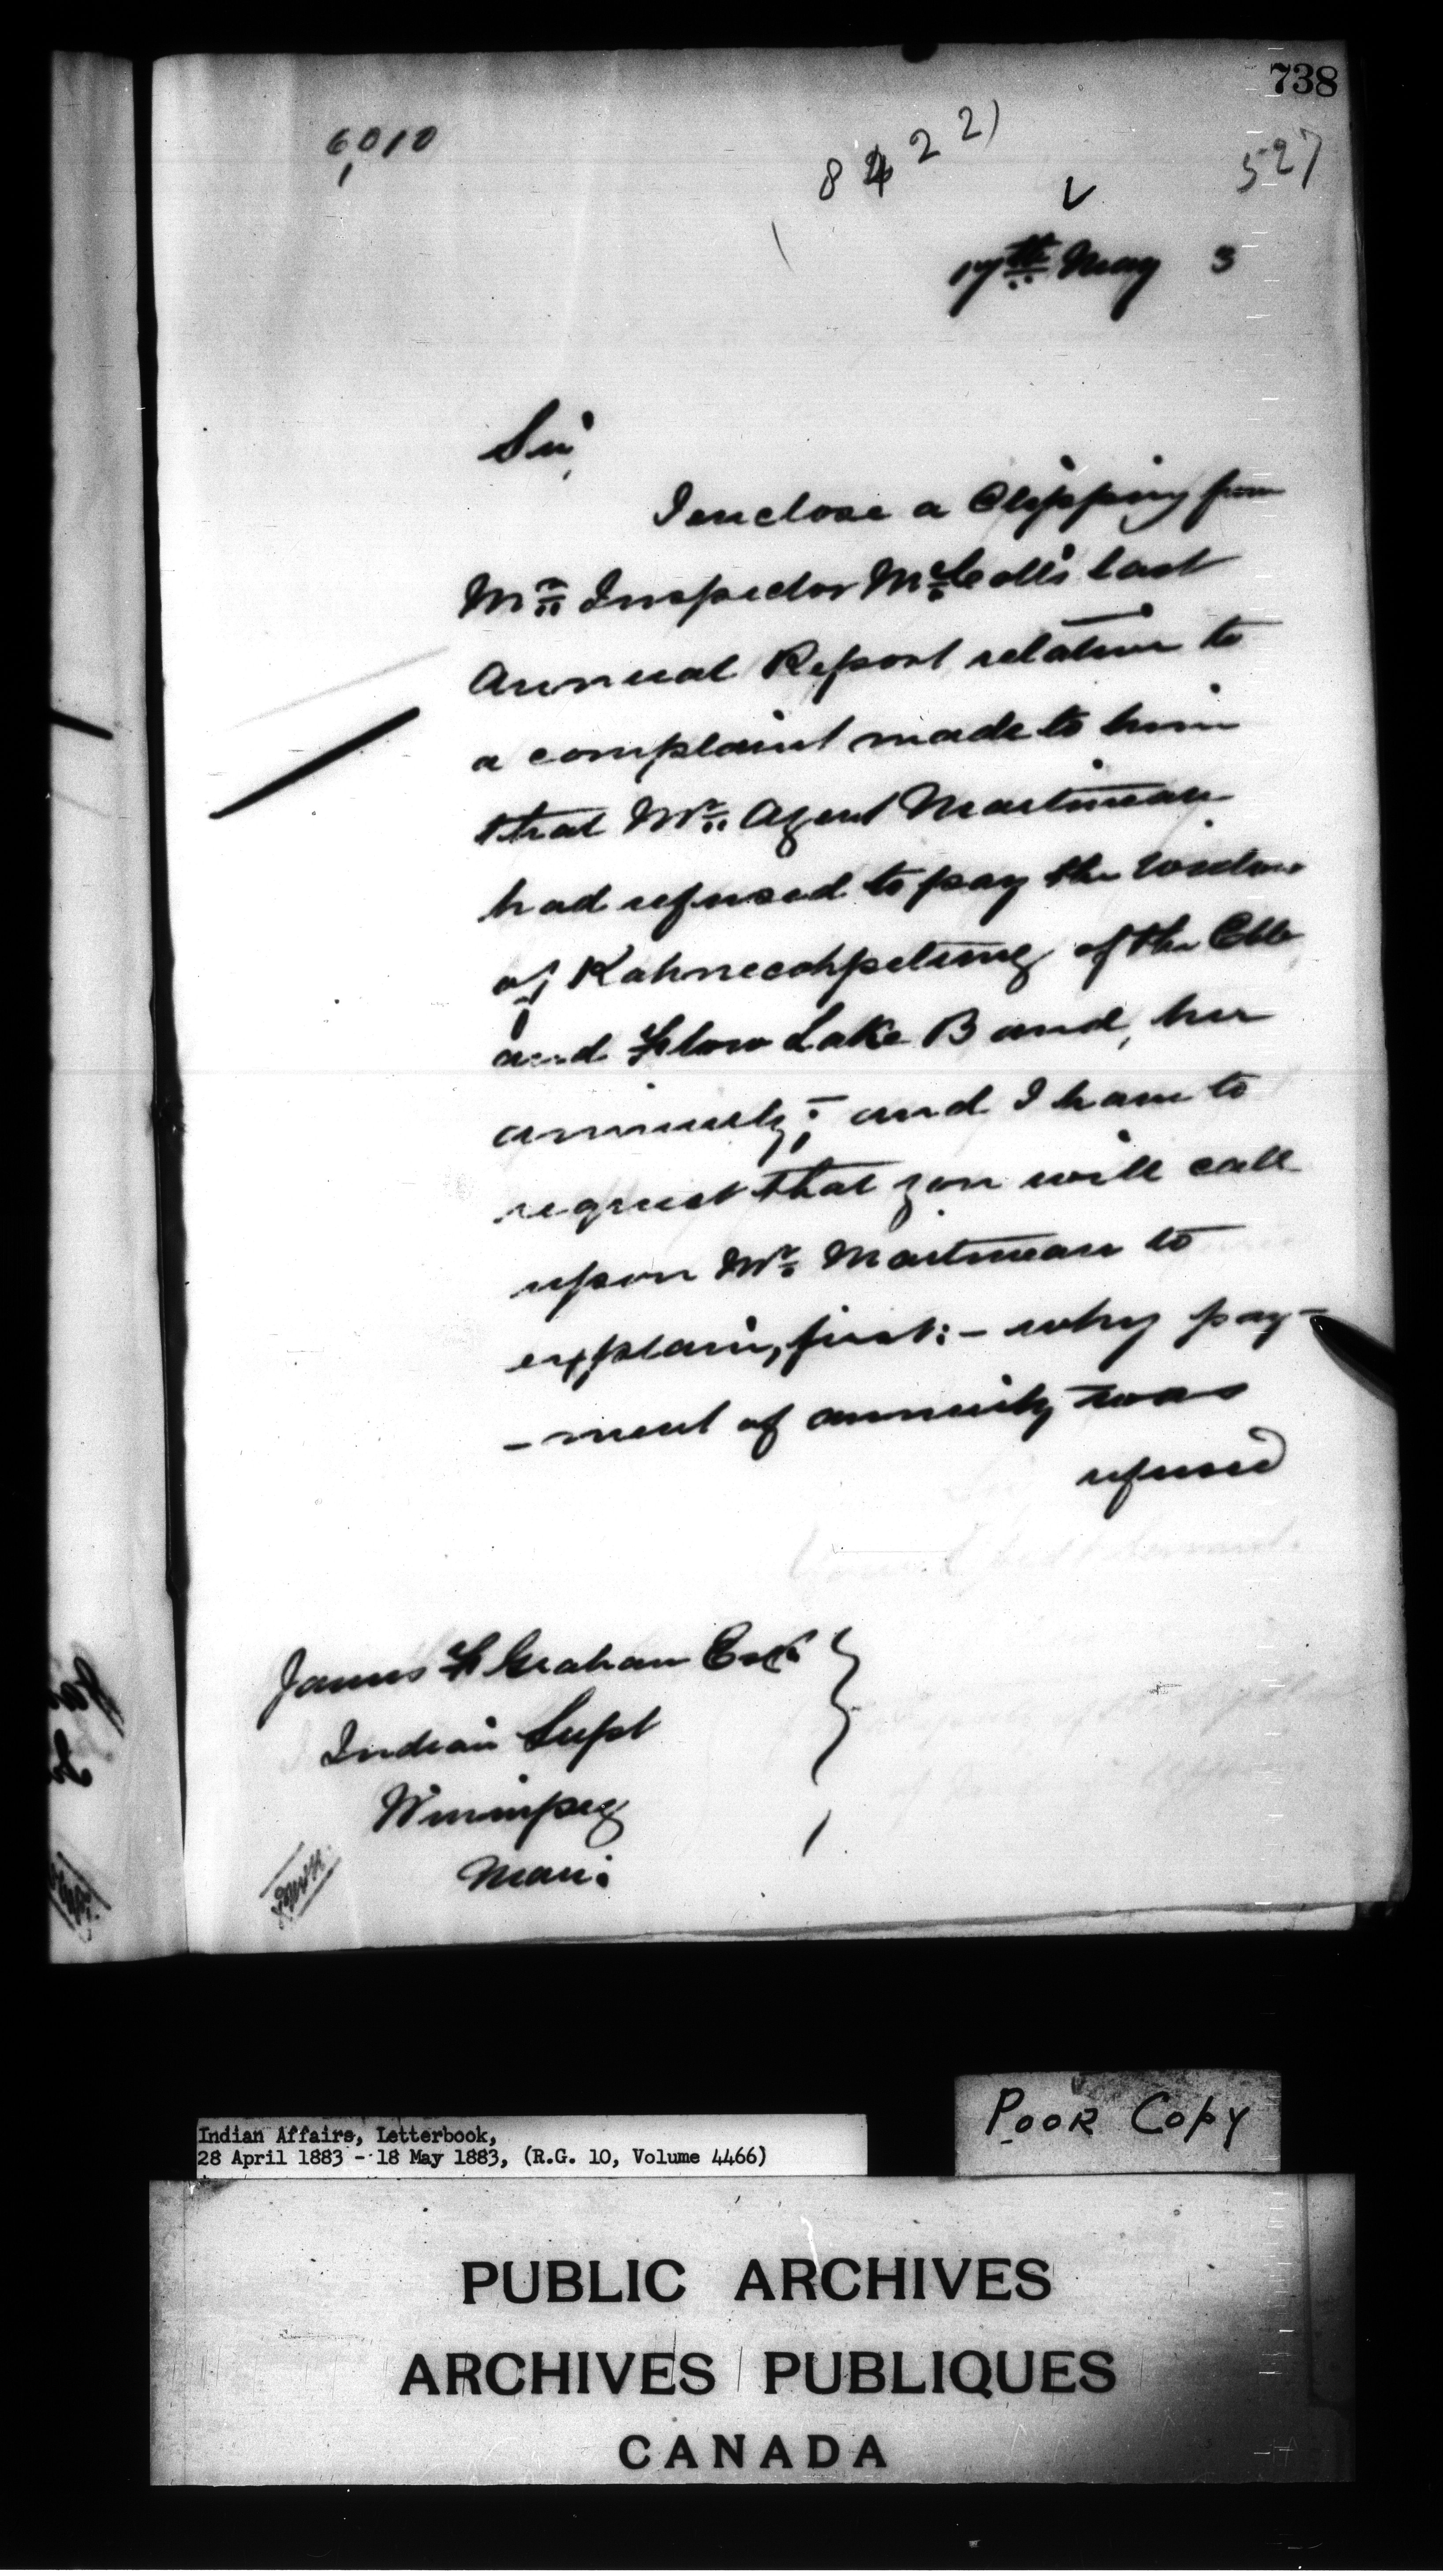 738
6,010
8422)
527
17th May 3
Sir,
I enclose a Clipping from
Mr Inspector McColl's last
Annual Report relative to
a complaint made to him
that Mr Agent Martineau
had refused to pay the widow
of Kahnecahpetung of the Ebb
and Flow Lake Band, her
annuity; and I have to
request that you will call
upon Mr Martineau to
explain, first:- why pay-
-ment of annuity was
refused
James F Graham Esq.
Indian Supt
Winnipeg
Man:
Poor Copy
Indian Affairs, Letterbook,
28 April 1883 - 18 May 1883, (R.G. 10, Volume 4466)
PUBLIC ARCHIVES
ARCHIVES PUBLIQUES
CANADA